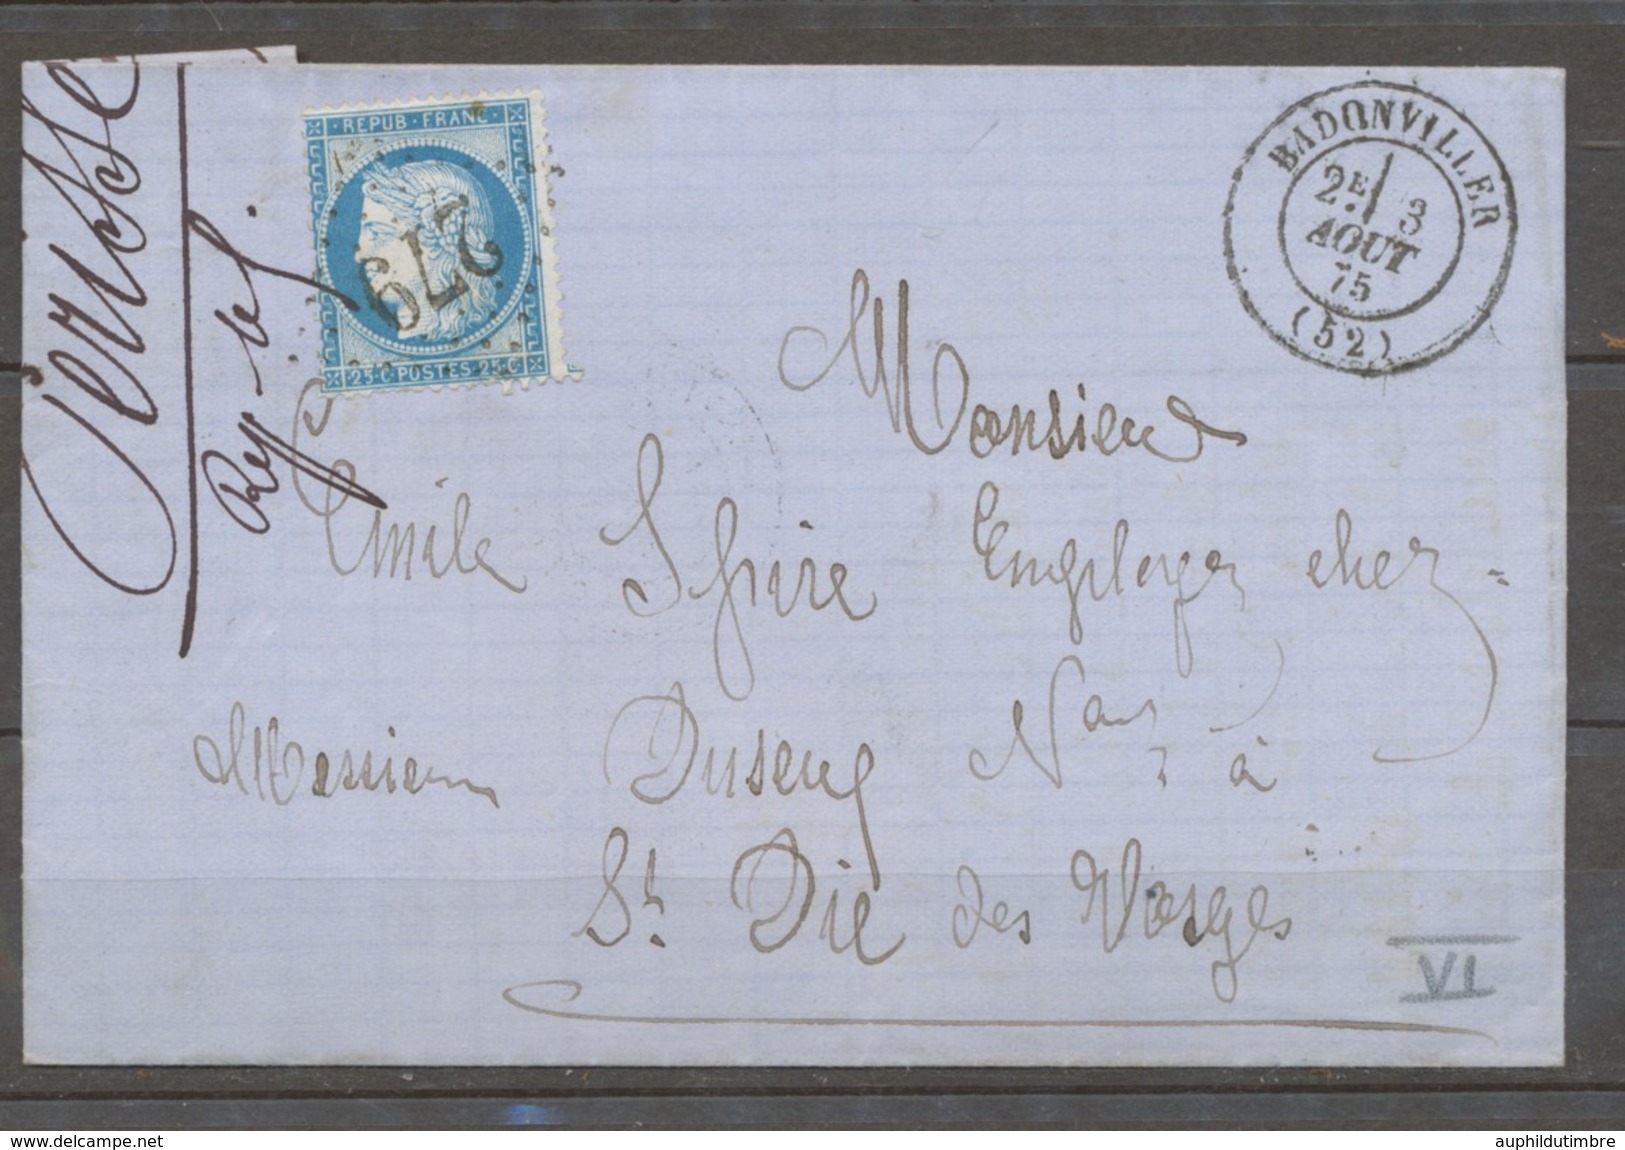 REPUB·FRANC
279
25·C·POSTES·25C
BADONVILLER
2E 3
AOUT
75
(52)
Monsieur
Emile Spire Employer chez
Messieurs Duseng à
St. Dié des Vosges
VI
www.delcampe.net
auphildutimbre